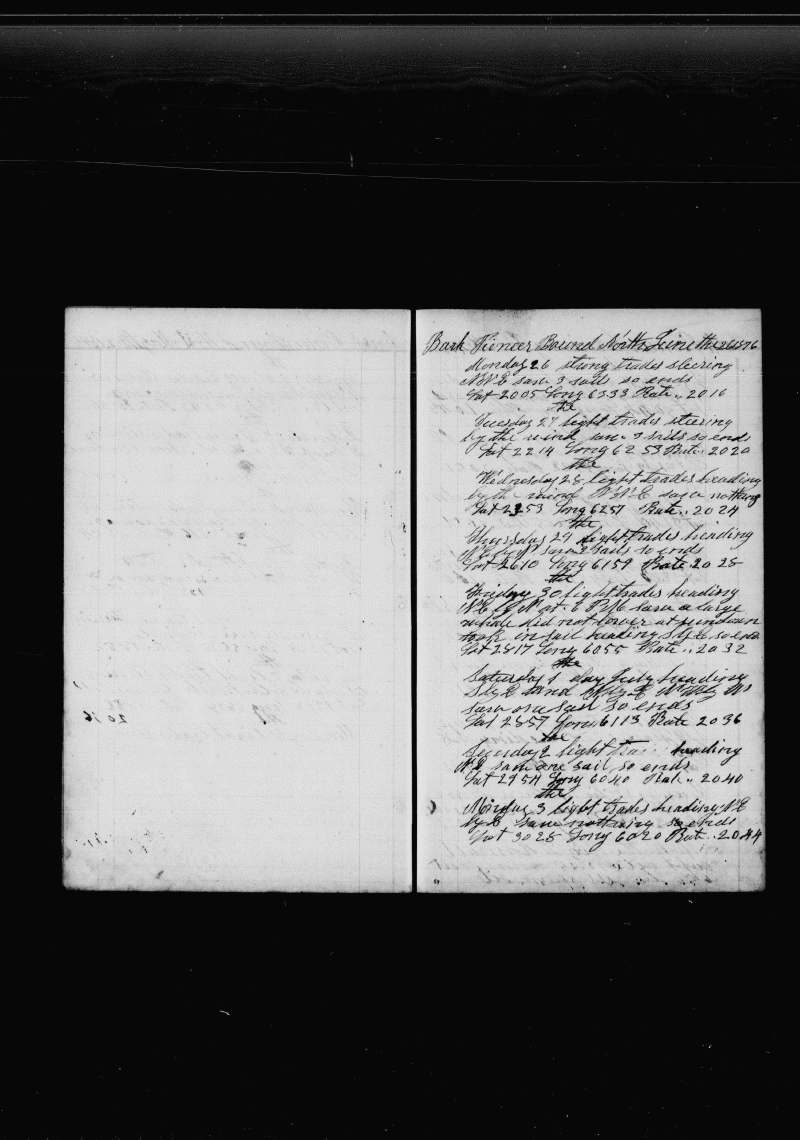 Bark Pioneer Bound North June the 26 1876
Monday 26 strong trades steering
NNE saw 3 sails so ends
Lat 2005 Long 6333 Rate .. 2016
the
Tuesday 27 light trades steering
by the wind saw 3 sails so ends
Lat 2214 Long 6253 Rate .. 2020
the
Wednesday 28 light trades heading
by the wind NNE saw nothing
Lat 2353 Long 6257 Rate .. 2024
the
Thursday 29 light trades heading
NE by N saw 2 sails so ends
Lat 2610 Long 6159 Rate .. 2028
the
Friday 30 light trades heading
NE by N at 6 PM saw a large
whale did not lower at sundown
took in sail heading S by E so ends
Lat 2817 Long 6055 Rate .. 2032
the
Saturday 1 day July heading
S by E and
saw one sail so ends
Lat 2857 Long 6113 Rate 2036
the
Sunday 2 light trades heading
NE saw one sail so ends
Lat 2954 Long 6040 Rate .. 2040
the
Monday 3 light trades heading NE
by E saw nothing so ends
Lat 3028 Long 6020 Rate .. 2044